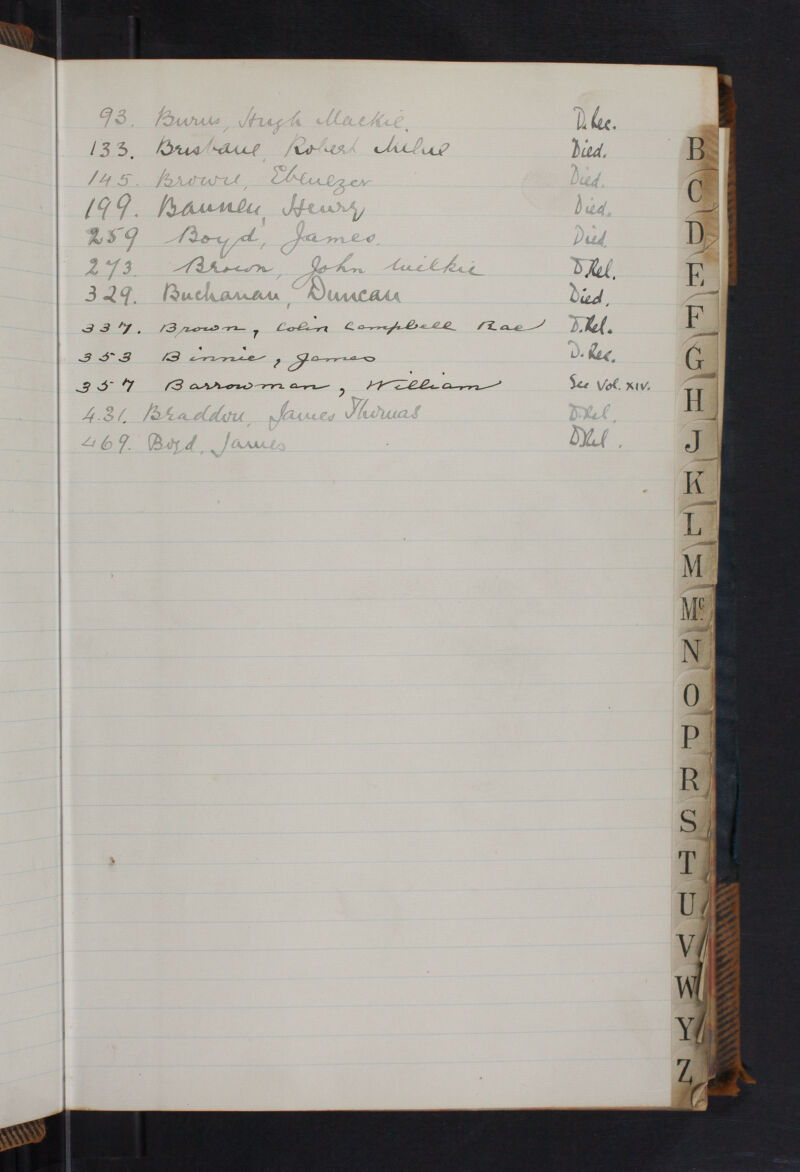 93. Burns, Hugh Mackie. D. Rec.
133. Brisbane, Robert Milne Died.
145. Brown, Ebenezer Died.
199. Bannen, Henry Died.
259 Boyd, James. Died
273 Brown, John Wilkie D.Rel.
329. Buchanan, Duncan Died.
337. Brown, Colin Campbell Rae D.Rel.
353 Binnie, James D. Rec.
357 Barrowman, William See Vol. XIV.
431. Braddon, James Thomas D.Rel.
469. Boyd, James D.Rel.
B
C
D
E
F
G
H
J
K
L
M
Mc
N
O
P
R
S
T
U
V
W
Y
Z